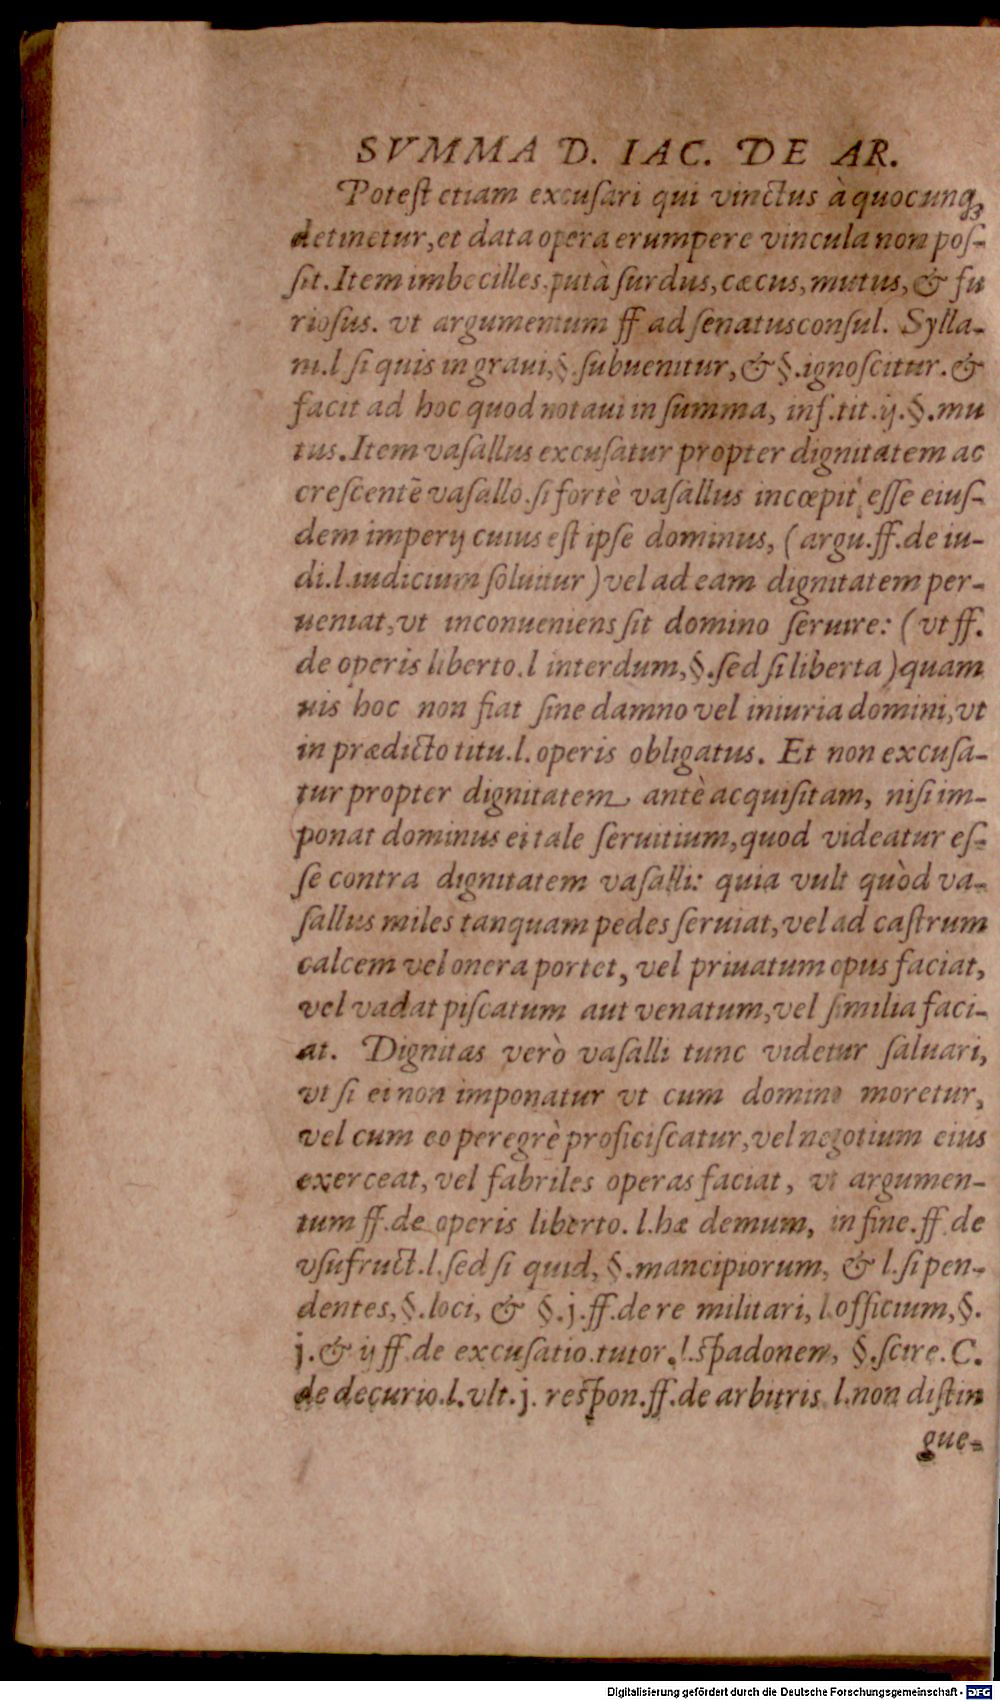 SVMMA D. IAC. DE AR.
Potest etiam excusari qui vinctus à quocunq;
detinetur, et data opera erumpere vincula non pos-
sit. Item imbecilles, putà surdus, cæcus, mutus, & fu
riosus. vt argumentum ff ad senatusconsul. Sylla-
ni. l si quis in graui, §. subuenitur, & §. ignoscitur. &
facit ad hoc quod notaui in summa, inf. tit. ij. §. mu
tus. Item vasallus excusatur propter dignitatem ac
crescentē vasallo. si fortè vasallus incœpit esse eius-
dem imperij cuius est ipse dominus, (argu. ff. de iu-
di. l. iudicium soluitur) vel ad eam dignitatem per-
ueniat, vt inconueniens sit domino seruire: (vt ff.
de operis liberto. l interdum, §. sed si liberta) quam
uis hoc non fiat sine damno vel iniuria domini, vt
in prædicto titu. l. operis obligatus. Et non excusa-
tur propter dignitatem antè acquisitam, nisi im-
ponat dominus ei tale seruitium, quod videatur es-
se contra dignitatem vasalli: quia vult quòd va-
sallus miles tanquam pedes seruiat, vel ad castrum
calcem vel onera portet, vel priuatum opus faciat,
vel vadat piscatum aut venatum, vel similia faci-
at. Dignitas verò vasalli tunc videtur saluari,
vt si ei non imponatur vt cum domino moretur,
vel cum eo peregrè proficiscatur, vel negotium eius
exerceat, vel fabriles operas faciat, vt argumen-
tum ff. de operis liberto. l. hæ demum, in fine. ff. de
vsufruct. l. sed si quid, §. mancipiorum, & l. si pen-
dentes, §. loci, & §. j. ff. de re militari, l. officium, §.
j. & ij ff. de excusatio. tutor. l. spadonem, §. scire. C.
de decurio. l. vlt. j. respon. ff. de arbitris l. non distin
gue-
Digitalisierung gefördert durch die Deutsche Forschungsgemeinschaft - DFG